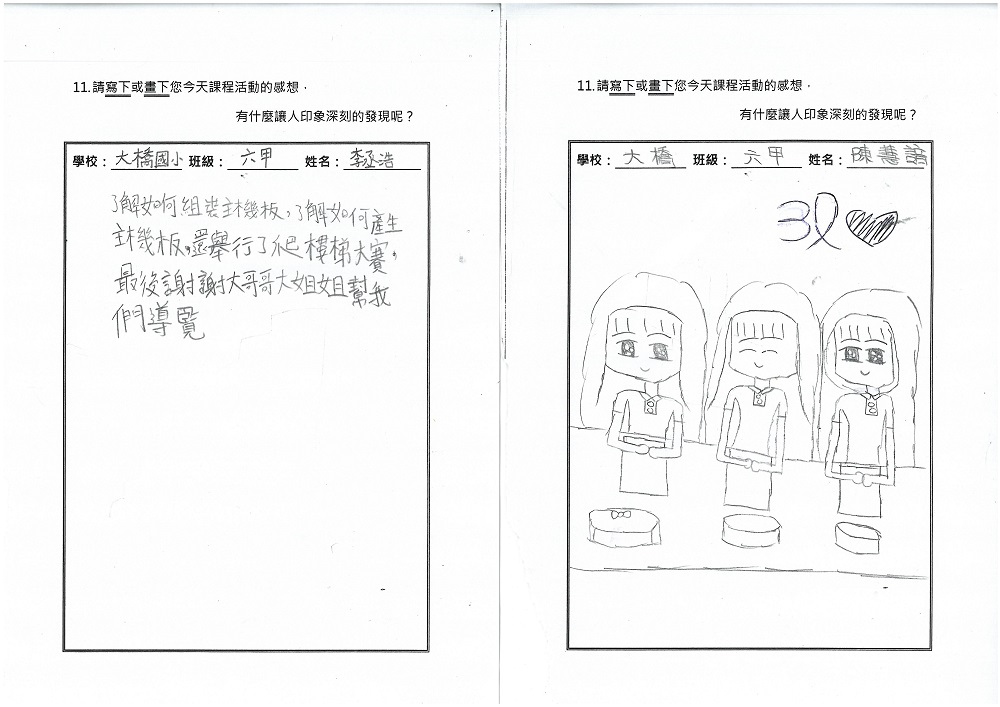 11.請寫下或畫下您今天課程活動的感想，
有什麼讓人印象深刻的發現呢？
學校：大橋國小 班級：六甲 姓名：李丞浩
了解如何組裝主機板，了解如何產生
主機板，還舉行了爬樓梯大賽，
最後謝謝大哥哥大姐姐幫我
們導覽
11.請寫下或畫下您今天課程活動的感想，
有什麼讓人印象深刻的發現呢？
學校：大橋 班級：六甲 姓名：陳